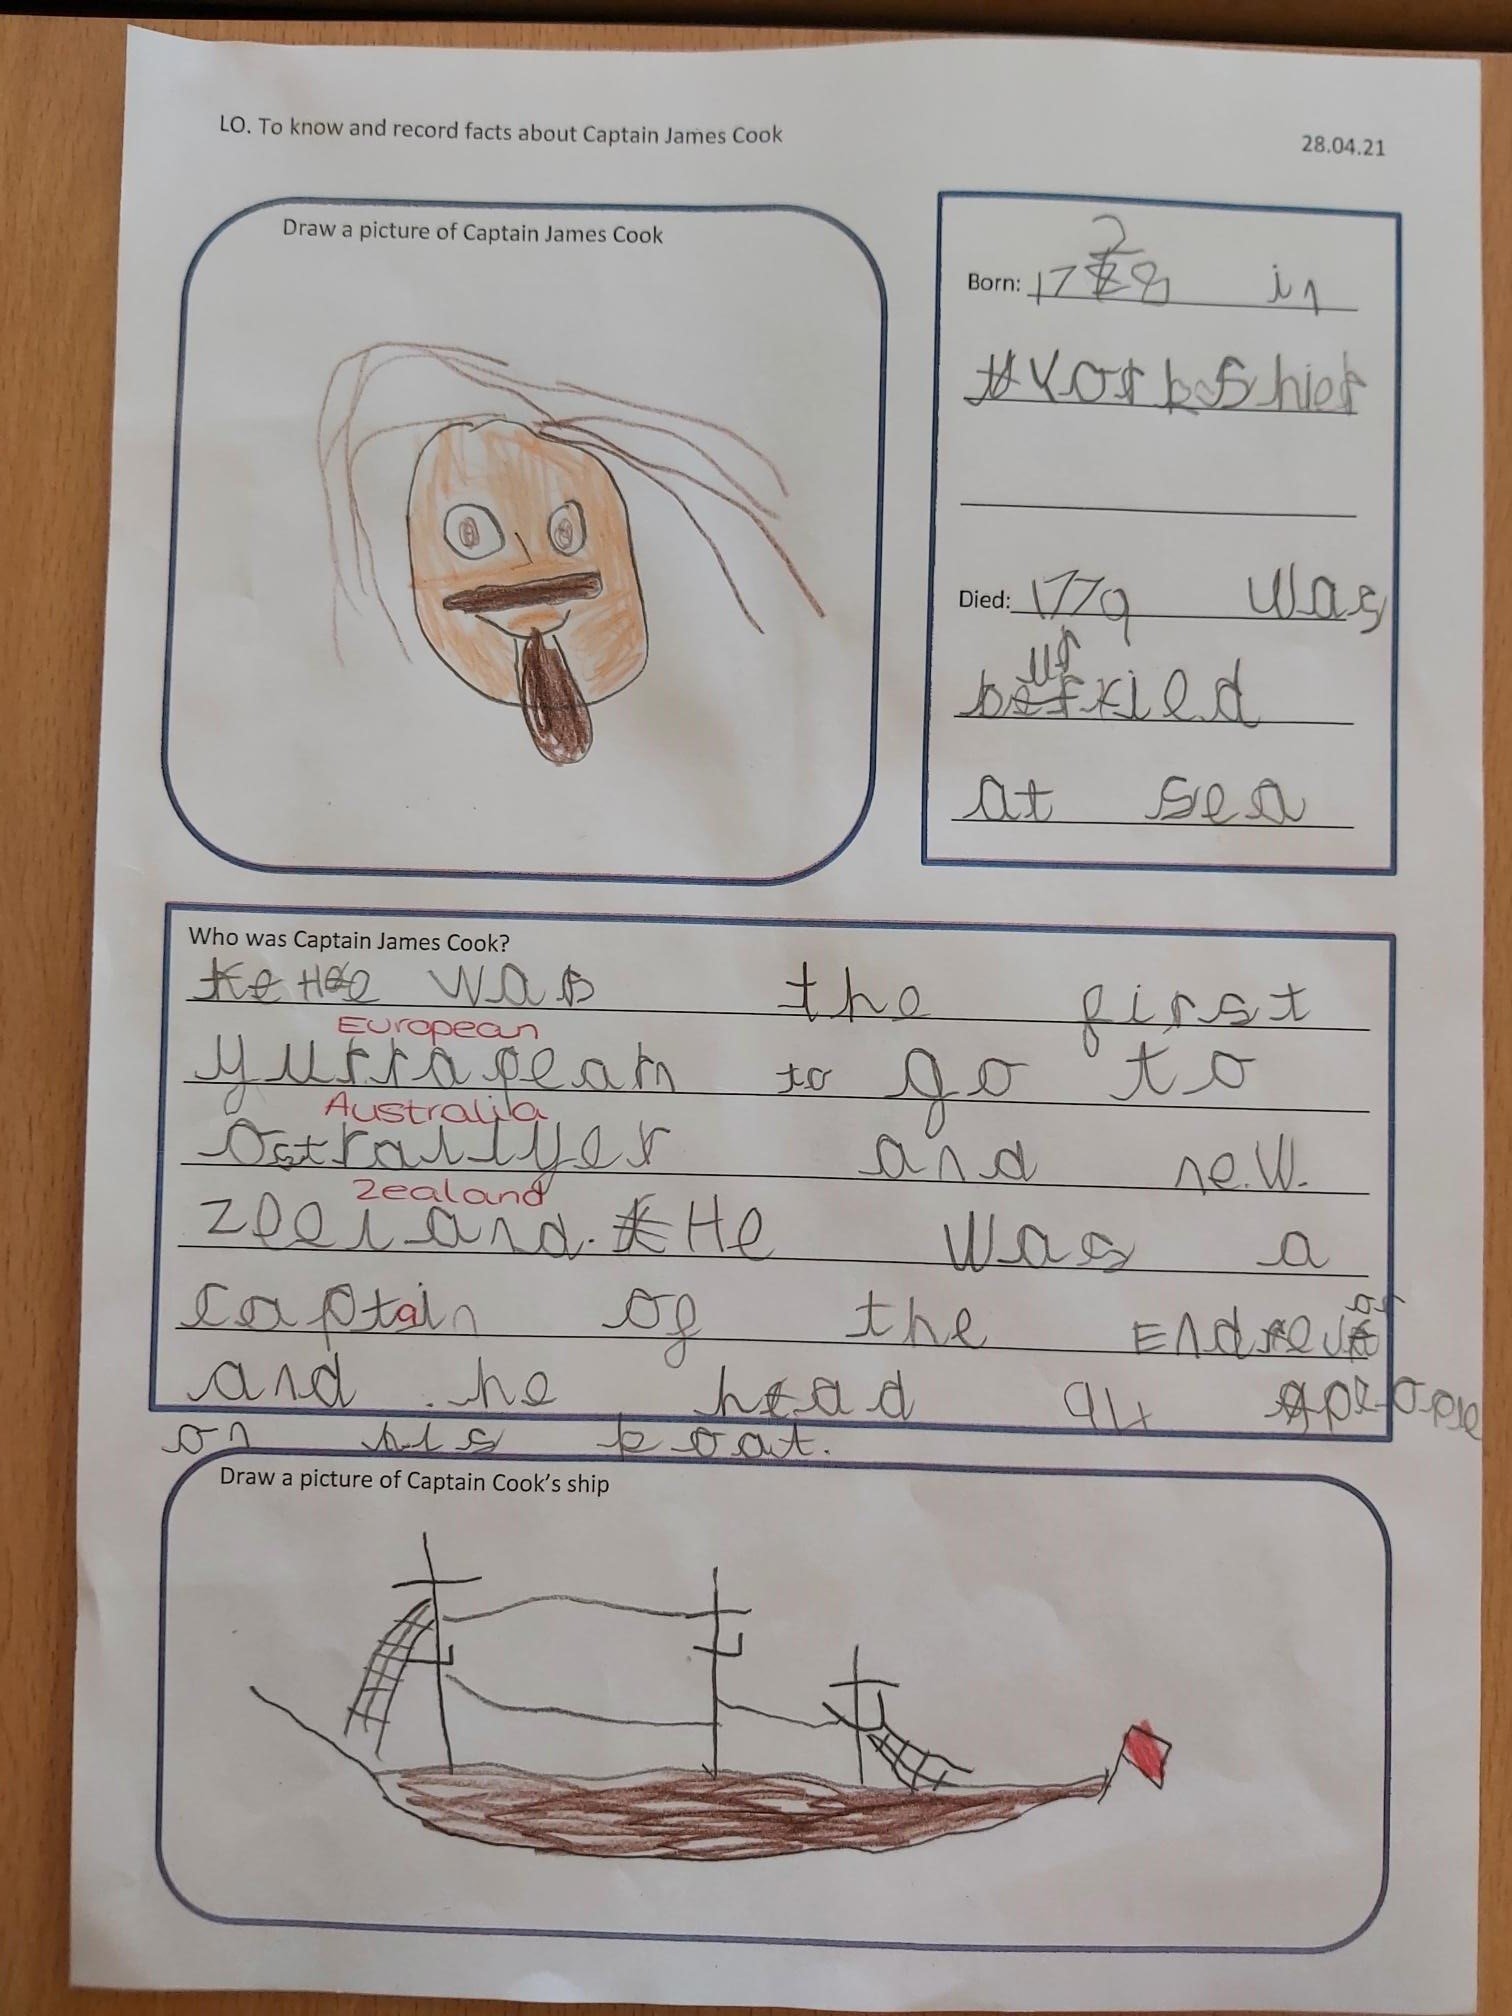 LO. To know and record facts about Captain James Cook
28.04.21
Draw a picture of Captain James Cook
Born: 1728 in
Yorkshier
Died: 1779 was
burried
at sea
Who was Captain James Cook?
He was the first
European
yurrapean to go to
Australia
Ostrallyer and new
Zealand
zeeland. He was a
captain of the
and he head 94
on his boat.
Draw a picture of Captain Cook's ship